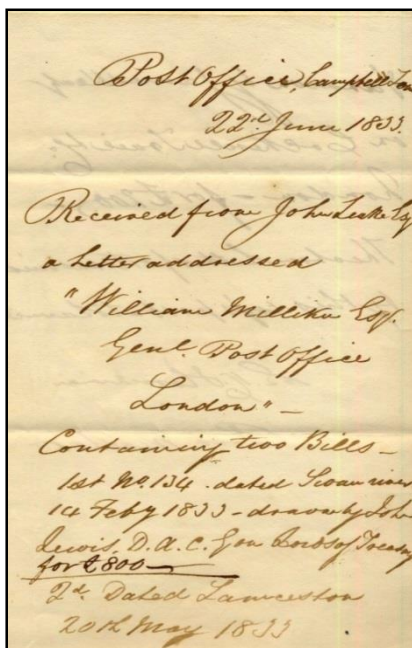 Post Office, Campbell Ton
22d. June 1833.
Received from John Leake Esq
a Letter addressed
"William Milliken Esqr.
Genl. Post Office
London" –
Containing two Bills –
1st No. 134. dated Swan river
14 Feby 1833 – drawn by John
Lewis, D. A. C. Gen Lords of Treasury
for £800 –
2d. Dated Launceston
20th May 1833